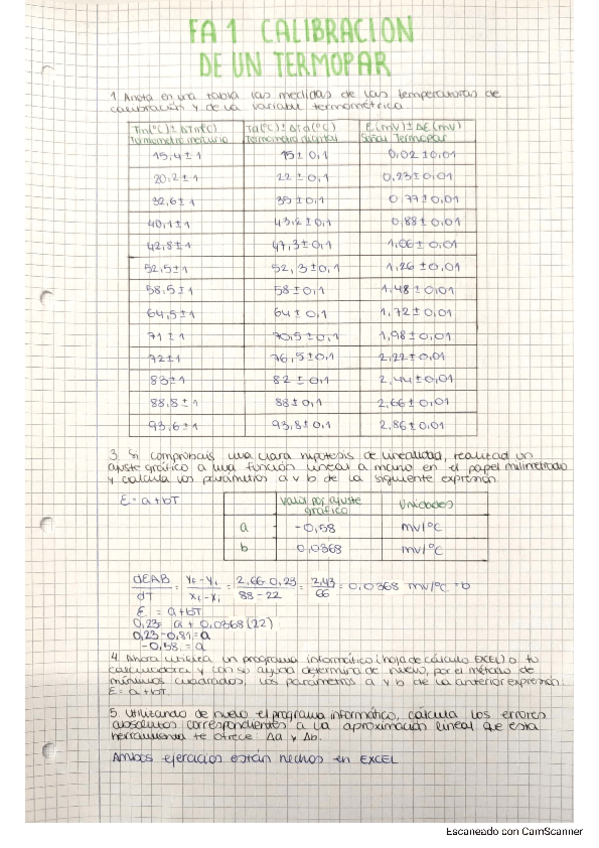 FA 1 CALIBRACION
DE UN TERMOPAR
1. Anota en una tabla las medidas de las temperaturas de
calibración y de la variable termométrica
Tm(ºC) ± ΔTm(ºC) Td(ºC) ± ΔTd(ºC) E(mV) ± ΔE(mV)
Termómetro mercurio Termómetro digital Señal Termopar
15,4 ± 1 15 ± 0,1 0,02 ± 0,01
20,2 ± 1 22 ± 0,1 0,23 ± 0,01
32,6 ± 1 35 ± 0,1 0,77 ± 0,01
40,1 ± 1 43,2 ± 0,1 0,88 ± 0,01
42,8 ± 1 47,3 ± 0,1 1,06 ± 0,01
52,5 ± 1 52,3 ± 0,1 1,26 ± 0,01
58,5 ± 1 58 ± 0,1 1,48 ± 0,01
64,5 ± 1 64 ± 0,1 1,72 ± 0,01
71 ± 1 70,5 ± 0,1 1,98 ± 0,01
72 ± 1 76,5 ± 0,1 2,22 ± 0,01
83 ± 1 82 ± 0,1 2,44 ± 0,01
88,8 ± 1 88 ± 0,1 2,66 ± 0,01
93,6 ± 1 93,8 ± 0,1 2,86 ± 0,01
3. Si comprobais una clara hipotesis de linealidad, realizad un
ajuste gráfico a una función lineal a mano en el papel milimetrado
y calcula los parámetros a y b de la siguiente expresión
E = a + bT
Valor por ajuste gráfico Unidades
a -0,58 mV/ºC
b 0,0368 mV/ºC
dEAB/dT = = 2,66-0,23/88-22 = 2,43/66 = 0,0368 mV/ºC = b
E = a + bT
0,23 = a + 0,0368(22)
0,23 - 0,81 = a
-0,58 = a
4. Ahora utiliza un programa informático (hoja de cálculo EXCEL) o tu
calculadora y con su ayuda determina de nuevo, por el método de
mínimos cuadrados, los parámetros a y b de la anterior expresión:
E = a + bT.
5. Utilizando de nuevo el programa informático, calcula los errores
absolutos correspondientes a la aproximación lineal que esta
herramienta te ofrece Δa y Δb.
Ambos ejercicios están hechos en EXCEL
Escaneado con CamScanner